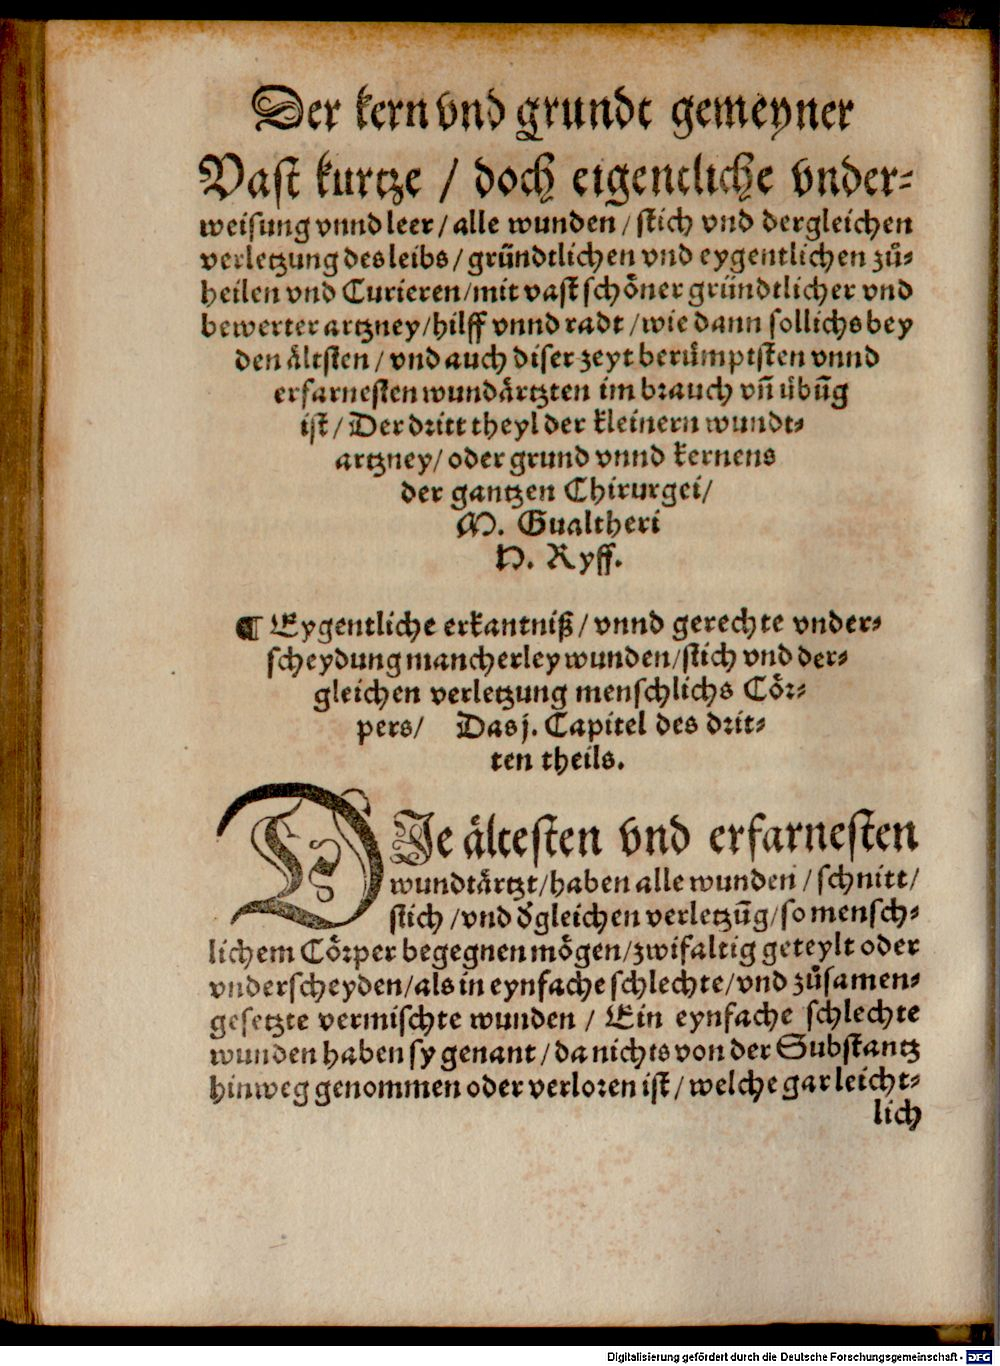 Der kern vnd grundt gemeyner
Vast kurtze / doch eigentliche vnder⸗
weisung vnnd leer / alle wunden / stich vnd dergleichen
verletzung des leibs / gründtlichen vnd eygentlichen zů⸗
heilen vnd Curieren / mit vast schöner gründtlicher vnd
bewerter artzney / hilff vnnd radt / wie dann sollichs bey
den ältesten / vnd auch diser zeyt berümptsten vnnd
erfarnesten wundärtzten im brauch vn̄ übūg
ist / Der dritt theyl der kleinern wundt⸗
artzney / oder grund vnnd kernens
der gantzen Chirurgei /
M. Gualtheri
H. Ryff.
¶ Eygentliche erkantniß / vnnd gerechte vnder⸗
scheydung mancherley wunden / stich vnd der⸗
gleichen verletzung menschlichs Cör⸗
pers / Das j. Capitel des drit⸗
ten theils.
DIe ältesten vnd erfarnesten
wundtärtzt / haben alle wunden / schnitt /
stich / vnd d̄gleichen verletzūg / so mensch⸗
lichem Cörper begegnen mögen / zwifaltig geteylt oder
vnderscheyden / als in eynfache schlechte / vnd zůsamen⸗
gesetzte vermischte wunden / Ein eynfache schlechte
wunden haben sy genant / da nichts von der Substantz
hinweg genommen oder verloren ist / welche gar leicht⸗
lich
Digitalisierung gefördert durch die Deutsche Forschungsgemeinschaft - DFG